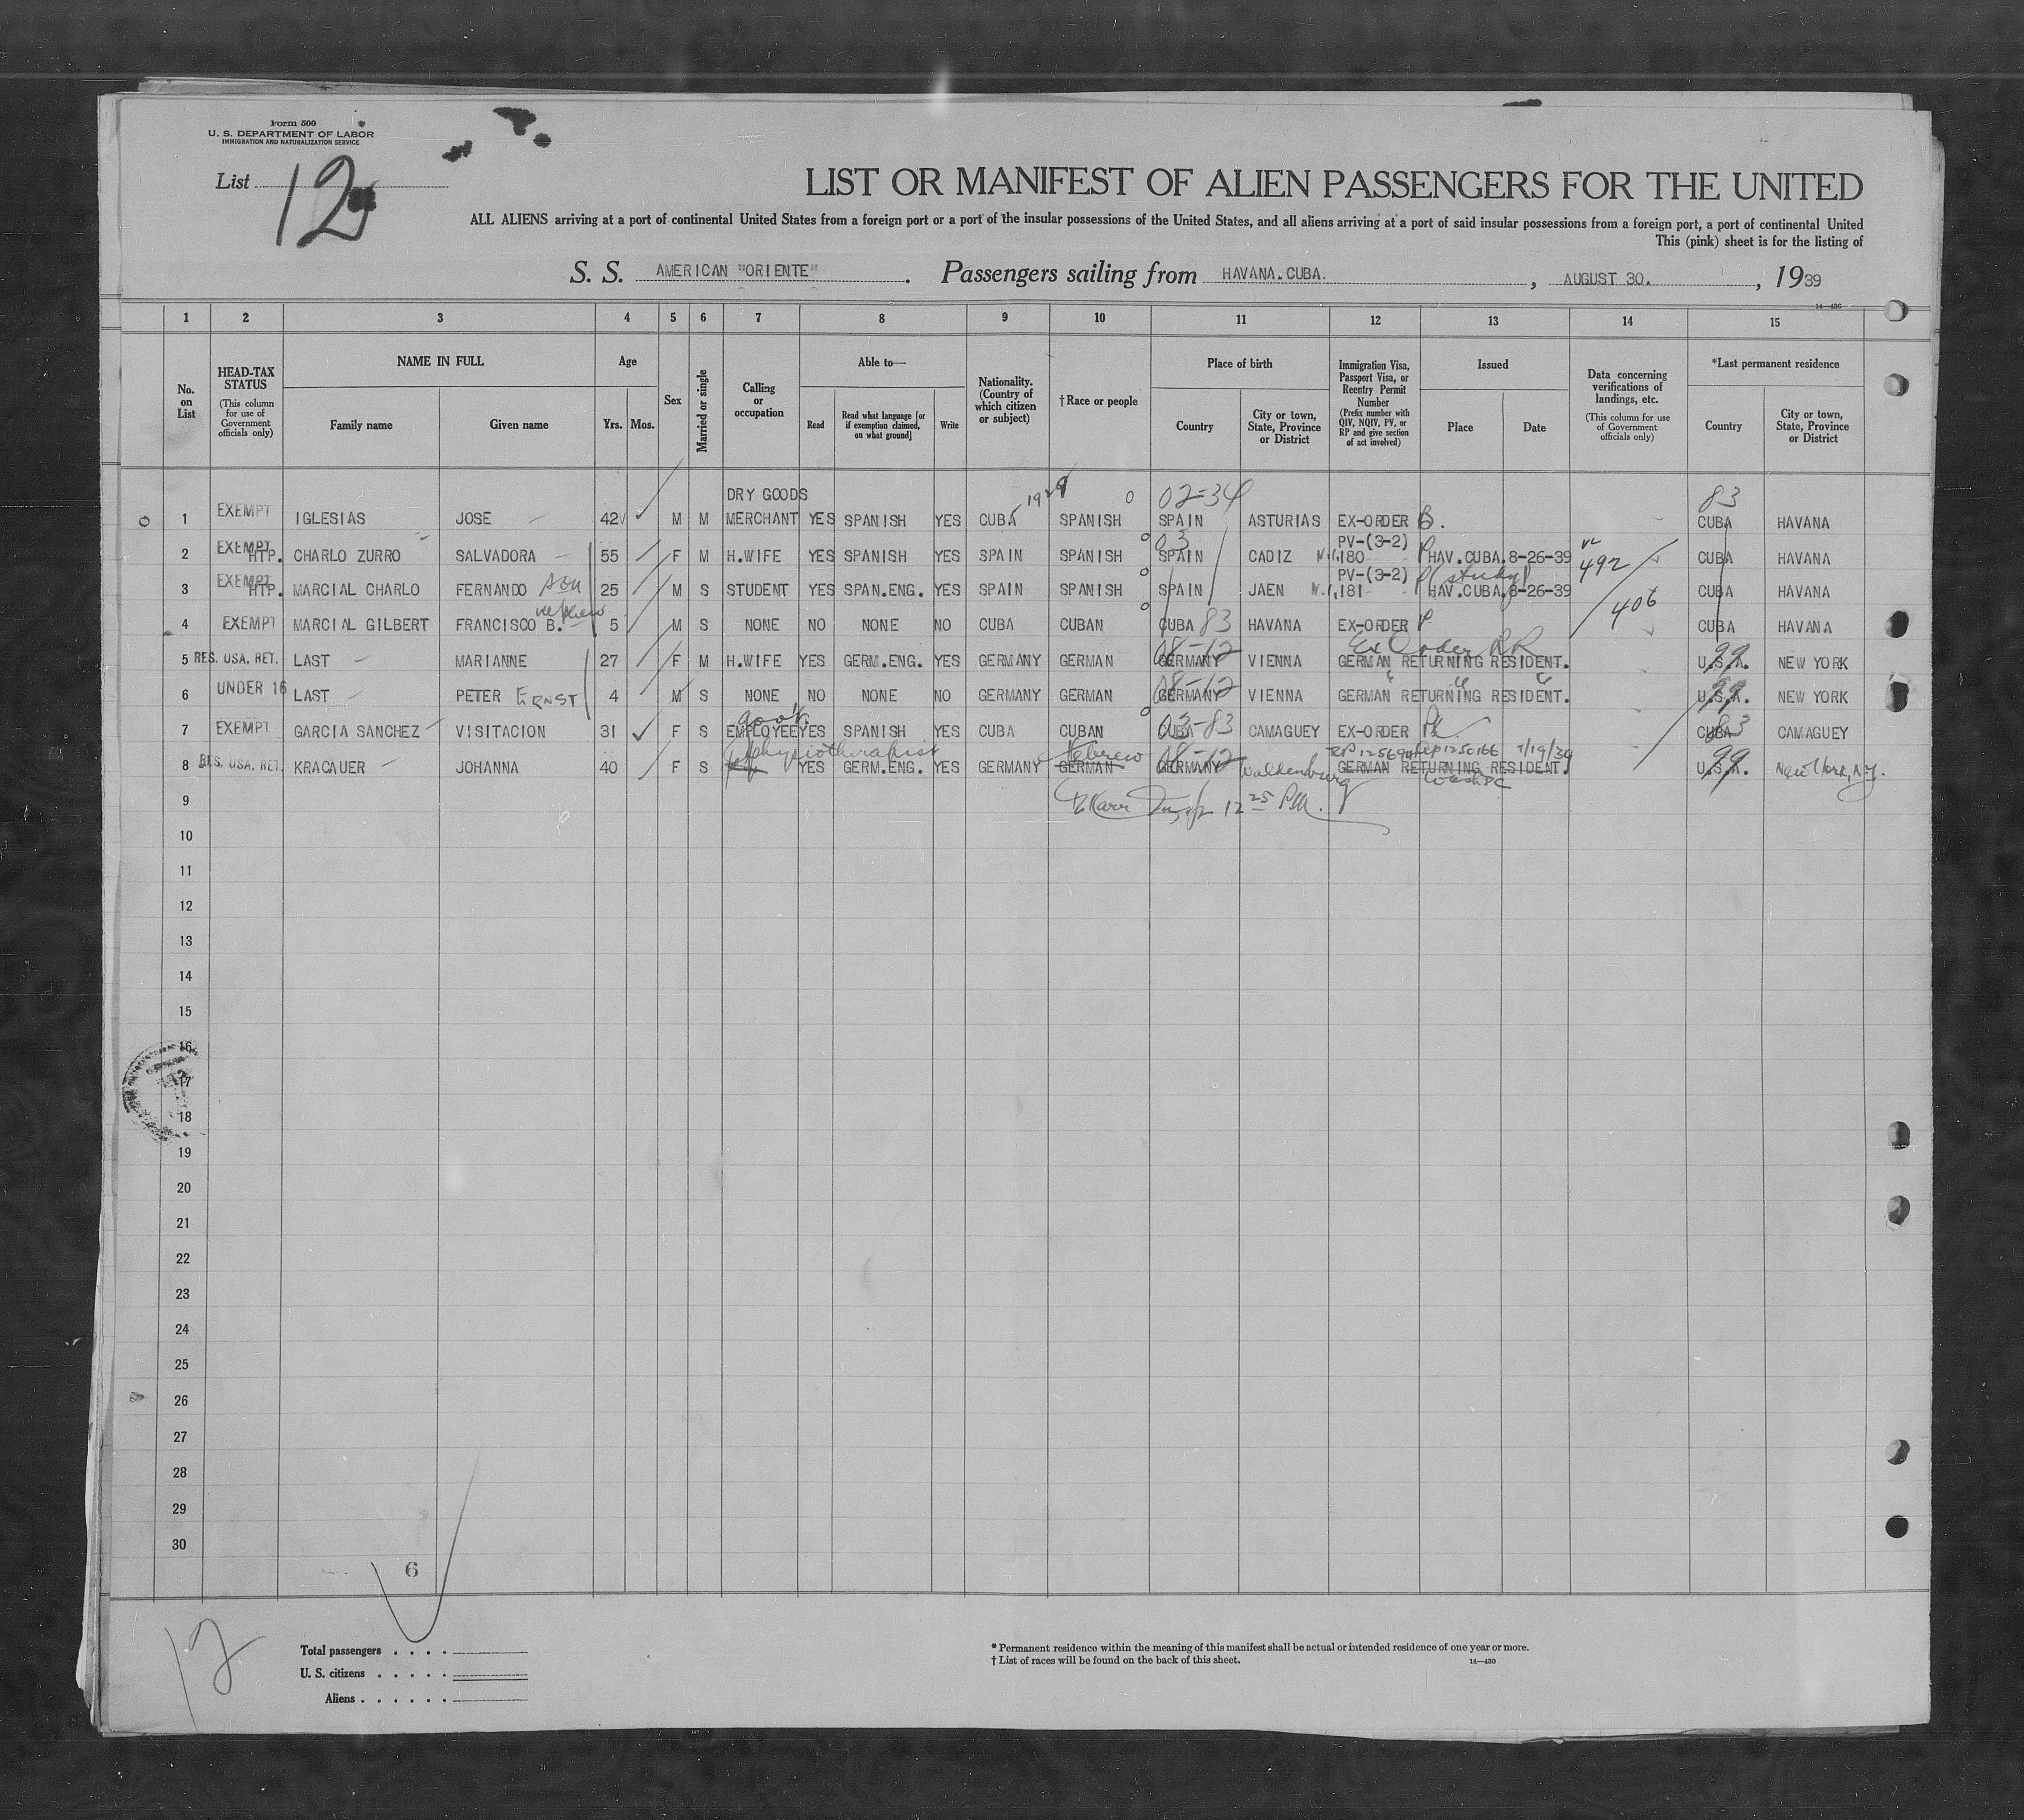 Form 500
U. S. DEPARTMENT OF LABOR
IMMIGRATION AND NATURALIZATION SERVICE
List 12
LIST OR MANIFEST OF ALIEN PASSENGERS FOR THE UNITED
ALL ALIENS arriving at a port of continental United States from a foreign port or a port of the insular possessions of the United States, and all aliens arriving at a port of said insular possessions from a foreign port, a port of continental United
This (pink) sheet is for the listing of
S. S. AMERICAN "ORIENTE". Passengers sailing from HAVANA.CUBA., AUGUST 30., 1939
14—430
1 2 3 4 5 6 7 8 9 10 11 12 13 14 15
No. on List
HEAD-TAX STATUS (This column for use of Government officials only)
NAME IN FULL
Family name
Given name
Age
Yrs. Mos.
Sex
Married or single
Calling or occupation
Able to—
Read
Read what language [or if exemption claimed, on what ground]
Write
Nationality. (Country of which citizen or subject)
†Race or people
Place of birth
Country
City or town, State, Province or District
Immigration Visa, Passport Visa, or Reentry Permit Number (Prefix number with QIV, NQIV, PV, or RP and give section of act involved)
Issued
Place
Date
Data concerning verifications of landings, etc. (This column for use of Government officials only)
*Last permanent residence
Country
City or town, State, Province or District
DRY GOODS 1929 0 02-34 83
1 EXEMPT IGLESIAS JOSE 42 M M MERCHANT YES SPANISH YES CUBA SPANISH SPAIN ASTURIAS EX-ORDER B. CUBA HAVANA
03 PV-(3-2) P
2 EXEMPT HTP. CHARLO ZURRO SALVADORA 55 F M H.WIFE YES SPANISH YES SPAIN SPANISH SPAIN CADIZ 180 HAV.CUBA.8-26-39 492 CUBA HAVANA
PV-(3-2) P (study)
3 EXEMPT HTP. MARCIAL CHARLO FERNANDO son 25 M S STUDENT YES SPAN.ENG. YES SPAIN SPANISH SPAIN JAEN 181 HAV.CUBA.8-26-39 406 CUBA HAVANA
nephew
4 EXEMPT MARCIAL GILBERT FRANCISCO B. 5 M S NONE NO NONE NO CUBA CUBAN CUBA 83 HAVANA EX-ORDER P CUBA HAVANA
08-12 Ex Order RR 99
5 RES. USA. RET. LAST MARIANNE 27 F M H.WIFE YES GERM.ENG. YES GERMANY GERMAN GERMANY VIENNA GERMAN RETURNING RESIDENT. U.S.A. NEW YORK
08-12 " " " 99
6 UNDER 16 LAST PETER ERNST 4 M S NONE NO NONE NO GERMANY GERMAN GERMANY VIENNA GERMAN RETURNING RESIDENT. U.S.A. NEW YORK
govt. 03-83 83
7 EXEMPT GARCIA SANCHEZ VISITACION 31 F S EMPLOYEE YES SPANISH YES CUBA CUBAN CUBA CAMAGUEY EX-ORDER CUBA CAMAGUEY
physiotherapist Hebrew 08-12 7/19/39 99
8 RES. USA. RET. KRACAUER JOHANNA 40 F S YES GERM.ENG. YES GERMANY GERMAN GERMANY Waldenburg GERMAN RETURNING RESIDENT. U.S.A. New York, N.Y.
Wash DC
9 12 25 PM.
10
11
12
13
14
15
16
17
18
19
20
21
22
23
24
25
26
27
28
29
30
6
12
Total passengers . . . .
U. S. citizens . . . . .
Aliens . . . . . .
* Permanent residence within the meaning of this manifest shall be actual or intended residence of one year or more.
† List of races will be found on the back of this sheet.
14—430